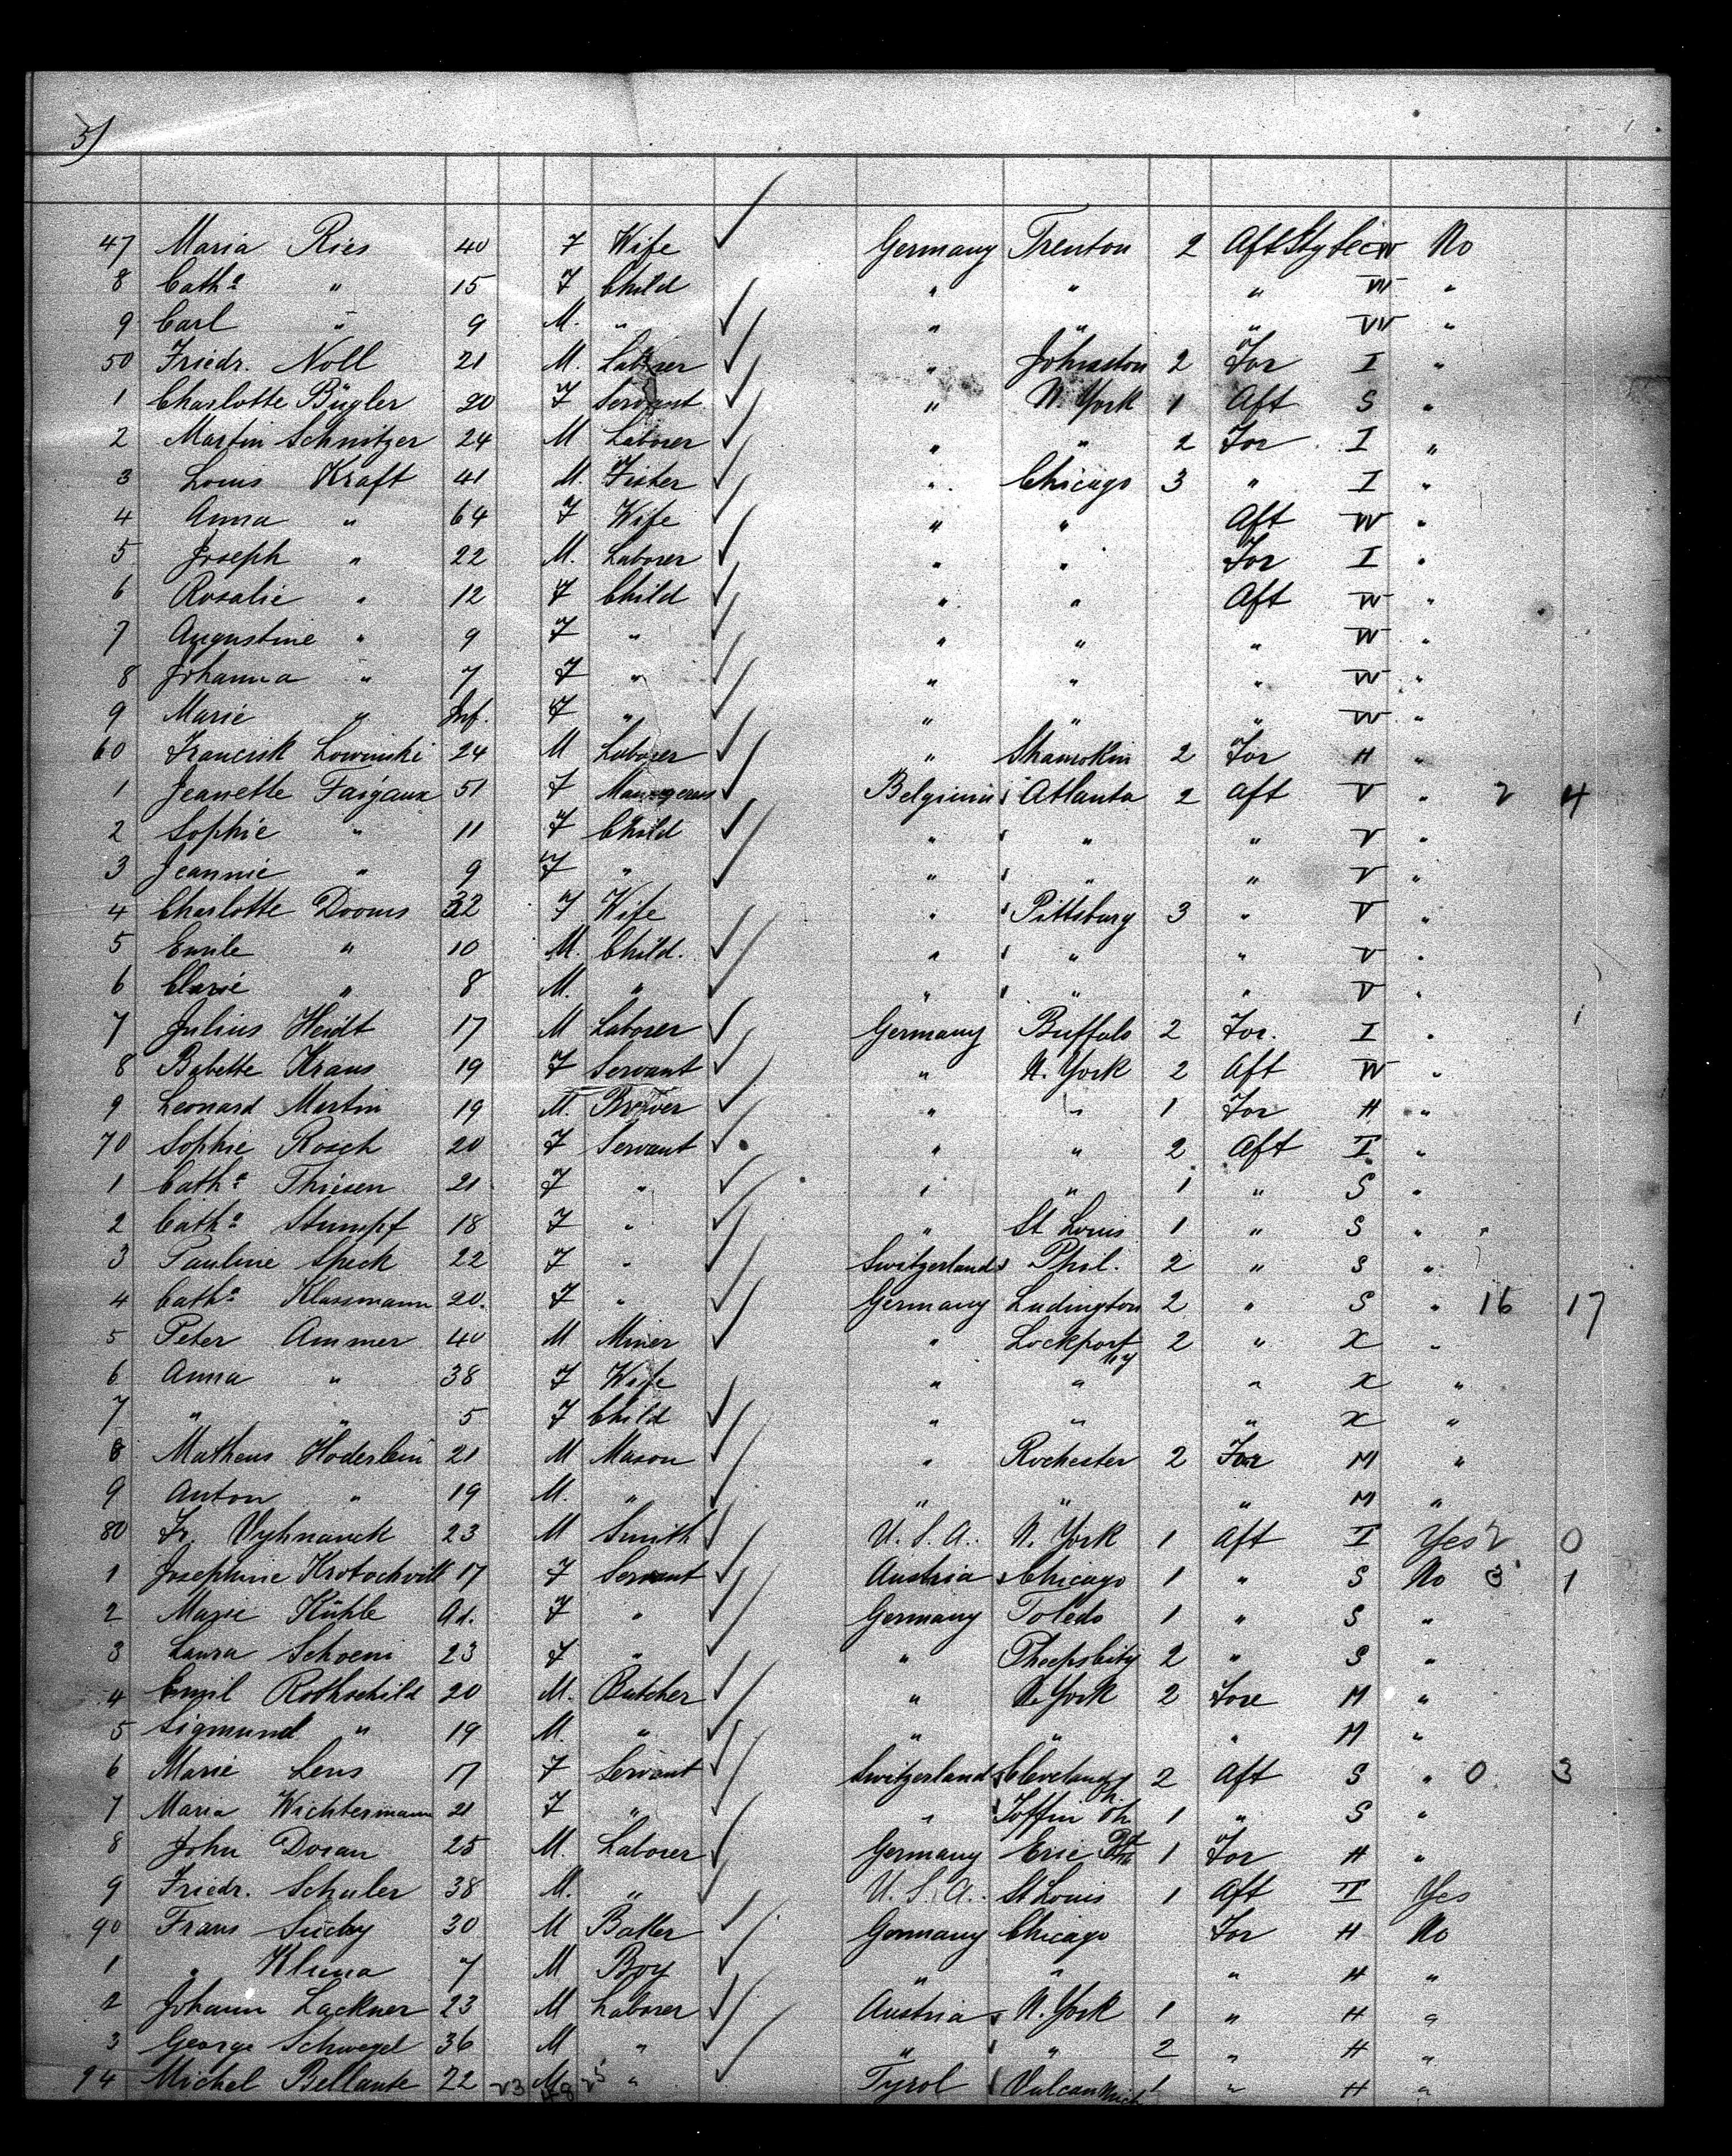 5)
47 Maria Ries 40 F Wife Germany Trenton 2 Aft Stg bec W No
8 Cath.a " 15 F Child " " " W "
9 Carl " 9 M. " " " " W "
50 Friedr. Noll 21 M. Laborer " Johnston 2 For I "
1 Charlotte Bügler 20 F Servant " N. York 1 Aft S "
2 Martin Schnitzer 24 M Laborer " " 2 For I "
3 Louis Kraft 41 M. Fisher " Chicago 3 " I "
4 Anna " 64 F Wife " " Aft W "
5 Joseph " 22 M. Laborer " " For I "
6 Rosalie " 12 F Child " " Aft W "
7 Augustine " 9 F " " " " W "
8 Johanna " 7 F " " " " W "
9 Marie " Inf. F " " " " W "
60 Francisk Lowinski 24 M Laborer " Shamokin 2 For H "
1 Jeanette Faigaux 51 F Belgium Atlanta 2 Aft V " 2 4
2 Sophie " 11 F Child " " " V "
3 Jeannie " 9 F " " " " V "
4 Charlotte Dooms 32 F Wife " Pittsburg 3 " V "
5 Emile " 10 M. Child. " " " V "
6 Clarie " 8 M. " " " " V "
7 Julius Heidt 17 M Laborer Germany Buffalo 2 For. I "
8 Babette Kraus 19 F Servant " N. York 2 Aft W "
9 Leonard Martin 19 M. Brower " " 1 For H "
70 Sophie Rosch 20 F Servant " " 2 Aft I "
1 Cath.a Thiesen 21 F " " " 1 " S "
2 Cath.a Stumpf 18 F " " St Louis 1 " S "
3 Pauline Speck 22 F " Switzerland Phil. 2 " S "
4 Cath.a Klassmann 20. F " Germany Ludington 2 " S " 16 17
5 Peter Ammer 40 M Miner " Lockport NY 2 " X "
6 Anna " 38 F Wife " " " X "
7 " " 5 F Child " " " X "
8 Matheus Höderlein 21 M Mason " Rochester 2 For M "
9 Anton " 19 M. " " " " M "
80 Fr. Vyhnanek 23 M Smith U. S. A. N. York 1 Aft I Yes 2 0
1 Josephine Krotochvill 17 F Servant Austria Chicago 1 " S No 3 1
2 Marie Kühle Ad. F " Germany Toledo 1 " S "
3 Laura Schoeni 23 F " " 2 " S "
4 Emil Rothschild 20 M. Butcher " N. York 2 Fore M "
5 Sigmund " 19 M. " " " " M "
6 Marie Lens 17 F Servant Switzerland Cleveland Oh. 2 Aft S " 0 3
7 Maria Wichtermann 21 F " " Toffin Oh 1 " S "
8 John Doran 25 M. Laborer Germany Erie 1 For H "
9 Friedr. Schuler 38 M. " U. S. A. St Louis 1 Aft I Yes
90 Frans Suchy 30 M Germany Chicago For H No
1 " Kluna 7 M Boy " " " H "
2 Johann Lackner 23 M Laborer Austria N. York 1 " H "
3 George Schwegel 36 M " " " 2 " H "
94 Michel Bellante 22 23 M 48 25 " Tyrol Vulcan Mich 1 " H "